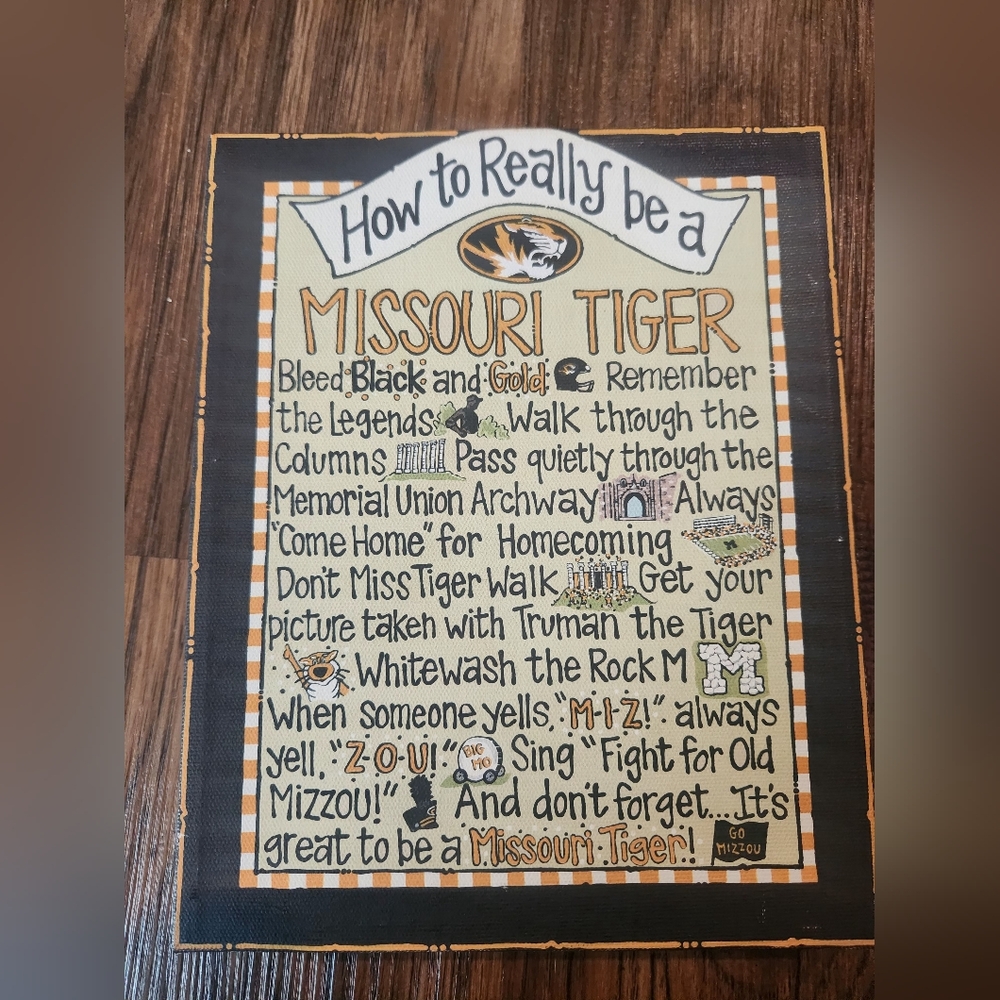 How to Really be a
MISSOURI TIGER
Bleed Black and Gold Remember
the Legends Walk through the
Columns Pass quietly through the
Memorial Union Archway Always
"Come Home" for Homecoming
M
Don't Miss Tiger Walk Get your
picture taken with Truman the Tiger
Whitewash the Rock M M
When someone yells, "M-I-Z!" always
yell, "Z-O-U!" BIG MO Sing "Fight for Old
Mizzou!" And don't forget... It's
great to be a Missouri Tiger! GO MIZZOU